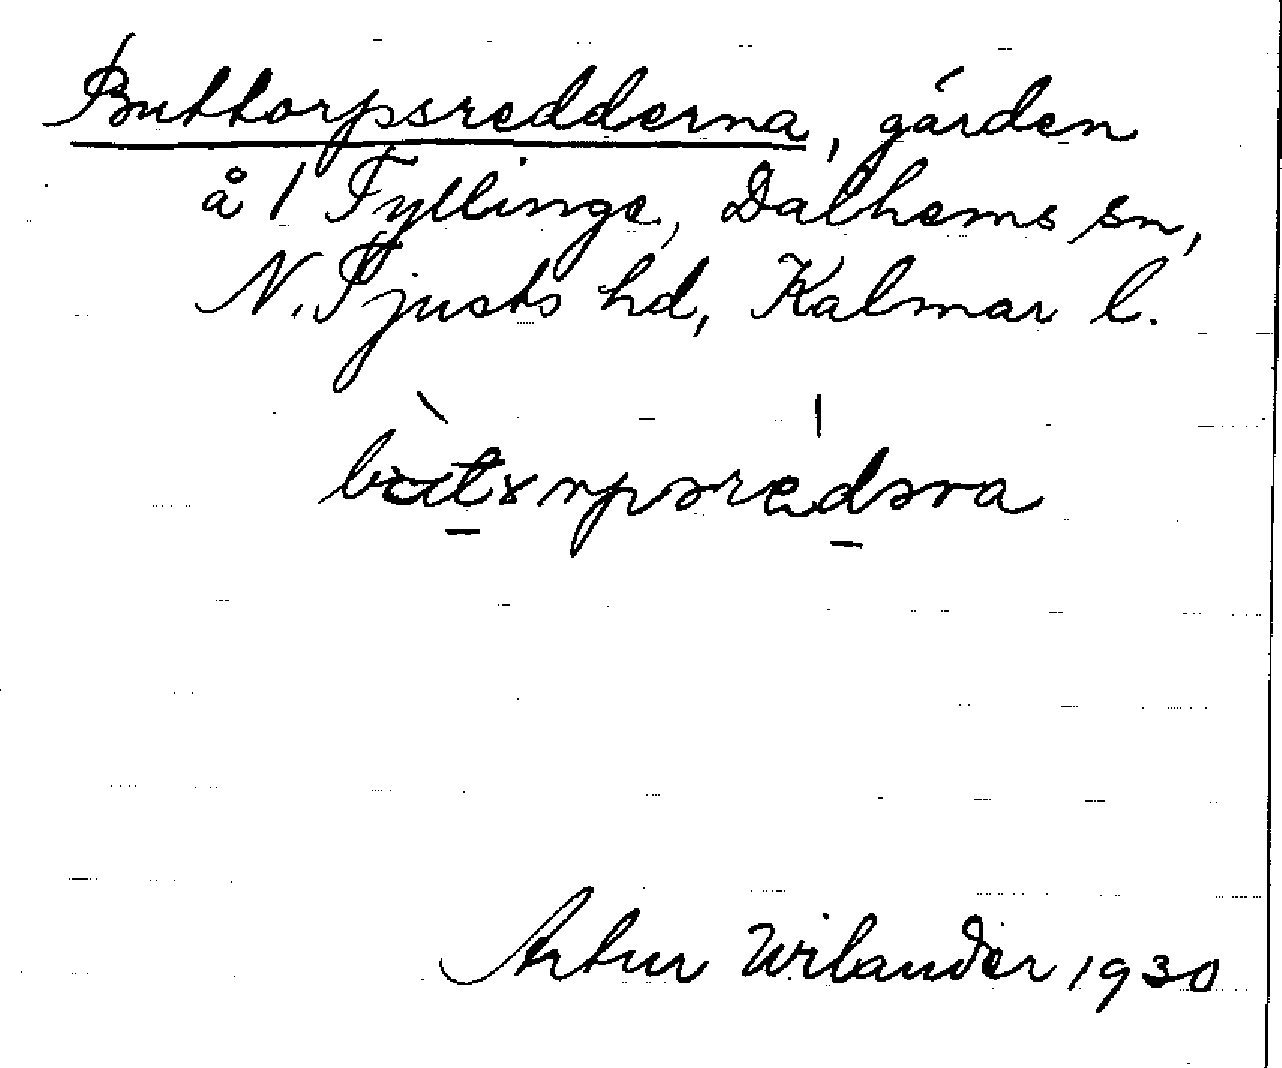 Buttorpsredderna, gården
å 1 Fyllinge, Dalhems sn,
N. Tjusts hd, Kalmar l.
Artur Wilander 1930